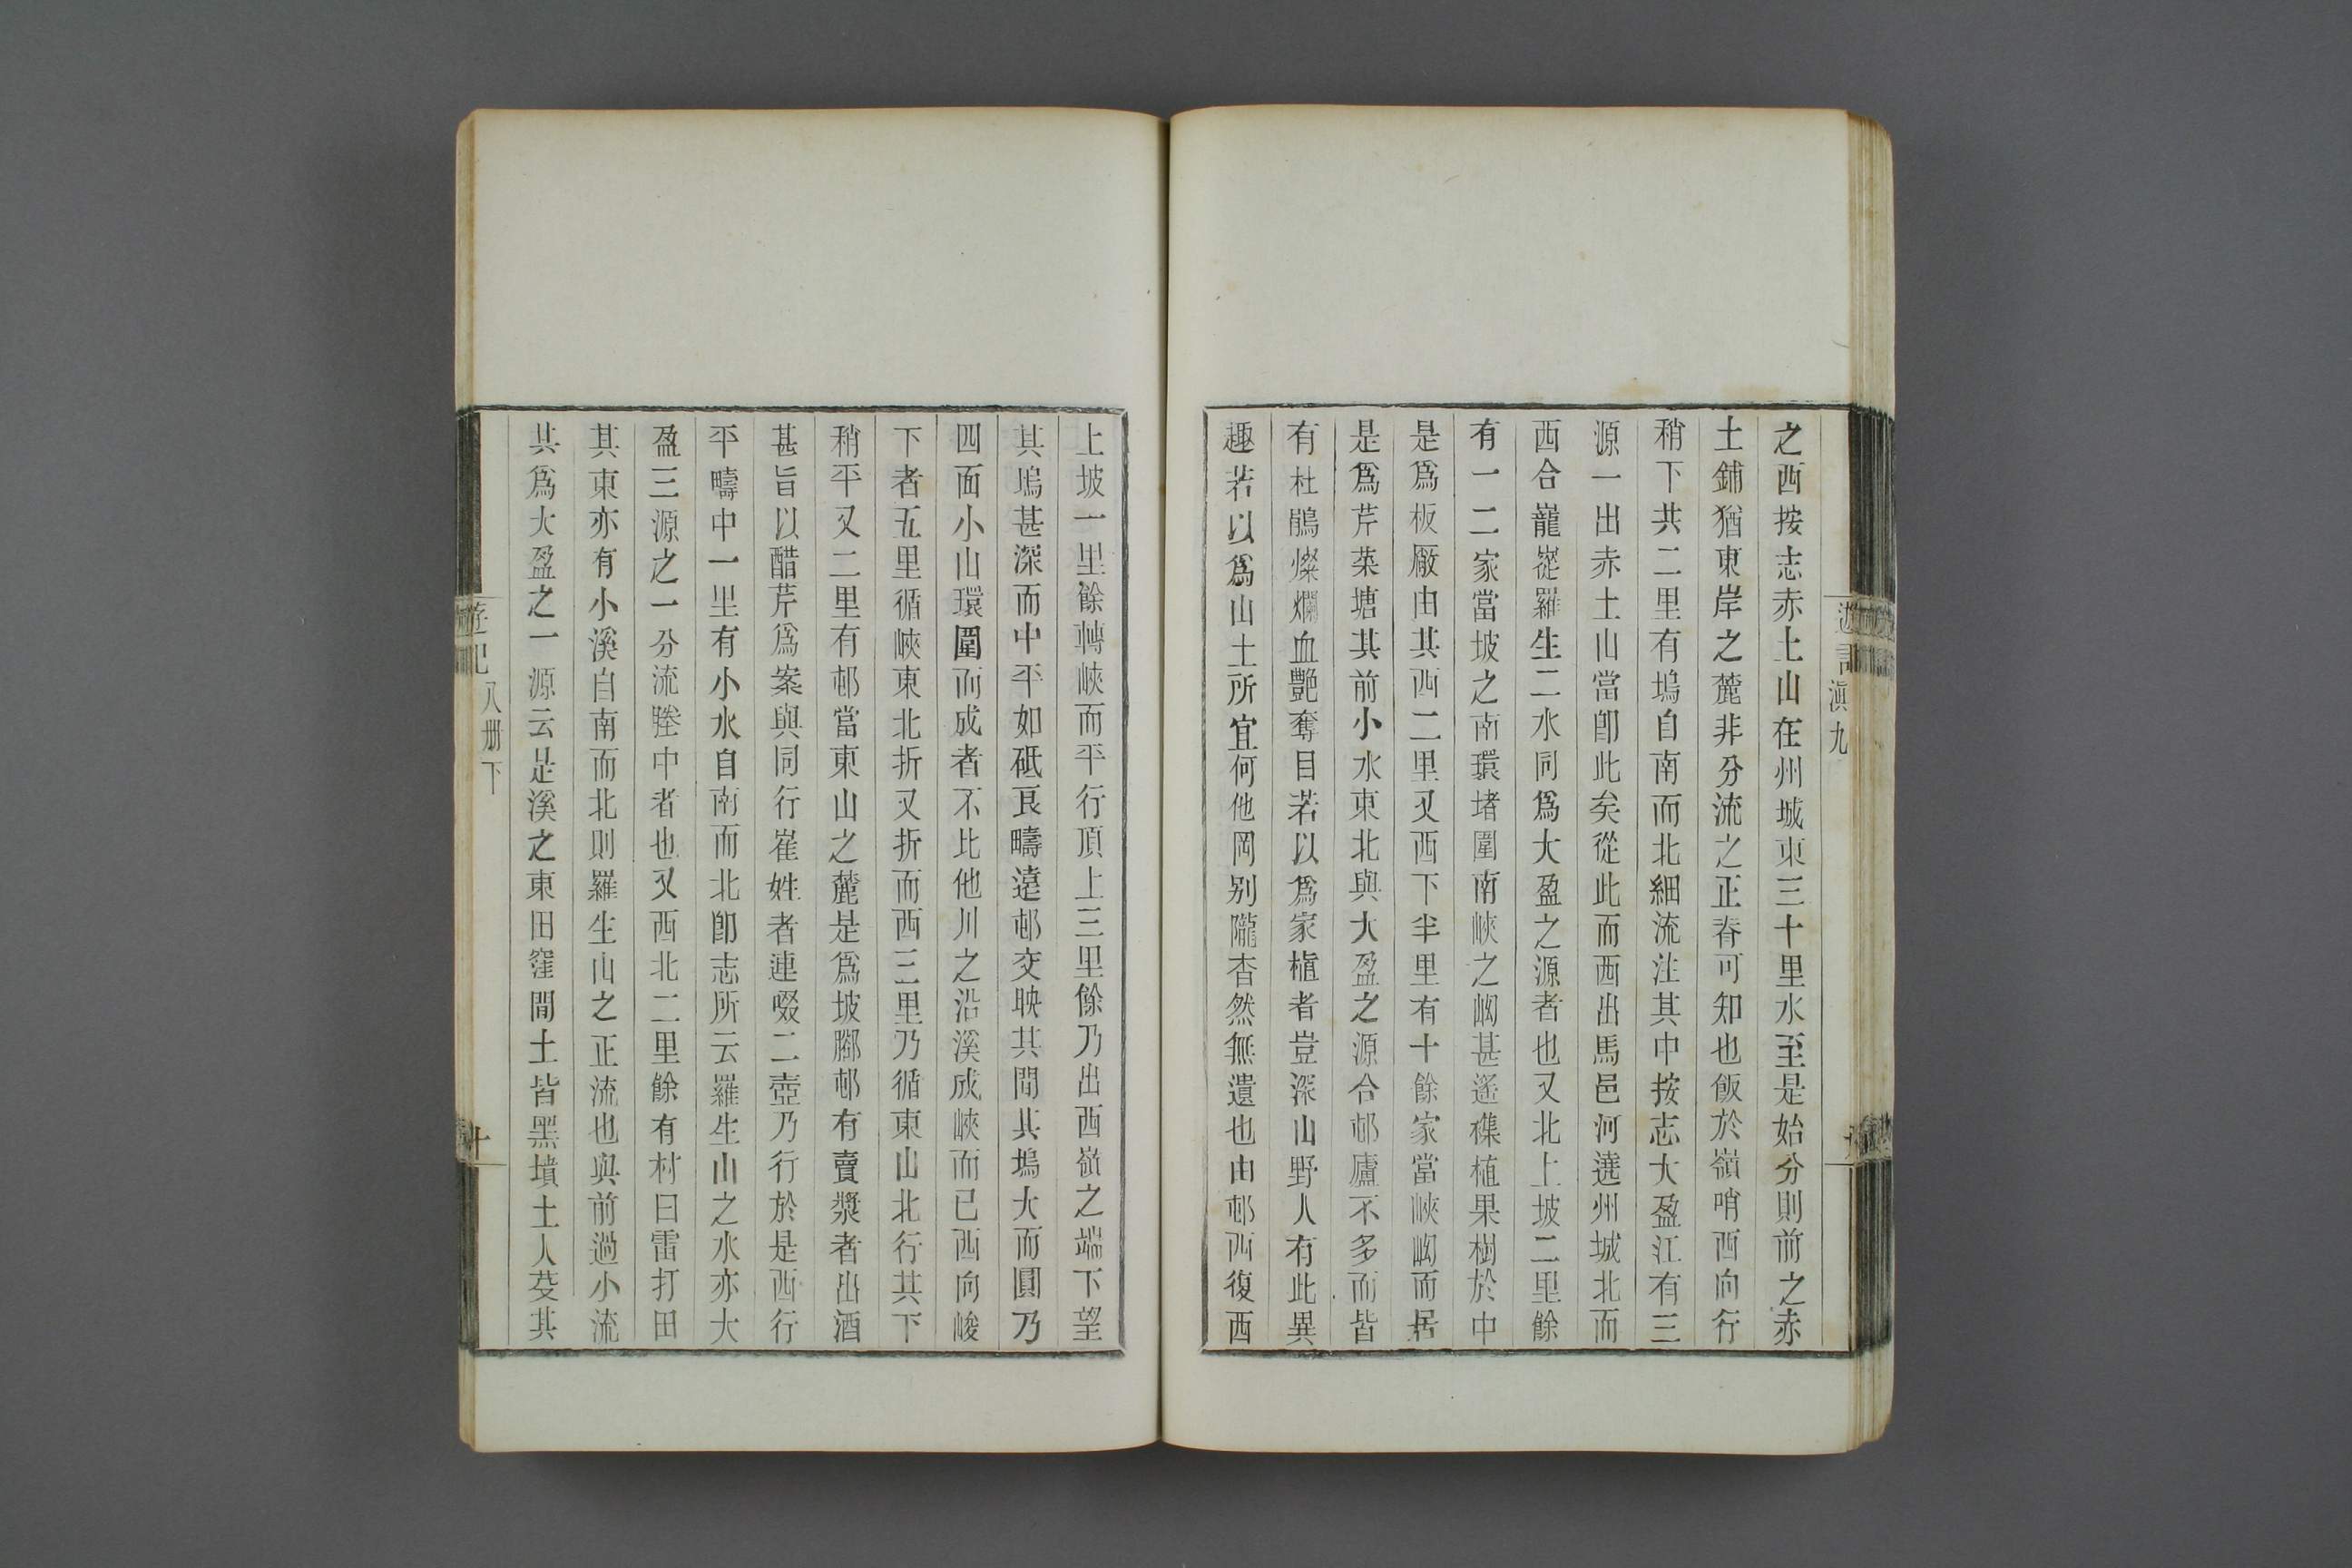 遊記 滇九
之西按志赤土山在州城東三十里水至是始分則前之赤
土鋪猶東岸之麓非分流之正脊可知也飯於嶺哨西向行
稍下共二里有塢自南而北細流注其中按志大盈江有三
源一出赤土山當卽此矣從此而西出馬邑河遶州城北而
西合巃嵸羅生二水同爲大盈之源者也又北上坡二里餘
有一二家當坡之南環堵圍南峽之㘭甚遙襍植果樹於中
是爲板廠由其西二里又西下半里有十餘家當峽㘭而居
是爲芹菜塘其前小水東北與大盈之源合邨廬不多而皆
有杜鵑燦爛血艷奪目若以爲家植者豈深山野人有此異
趣若以爲山土所宜何他岡别隴杳然無遺也由邨西復西
上坡一里餘轉峽而平行頂上三里餘乃出西嶺之端下望
其塢甚深而中平如砥良疇遠邨交映其間其塢大而圓乃
四面小山環圍而成者不比他川之沿溪成峽而已西向峻
下者五里循峽東北折又折而西三里乃循東山北行其下
稍平又二里有邨當東山之麓是爲坡腳邨有賣漿者出酒
甚旨以醋芹爲案與同行崔姓者連啜二壺乃行於是西行
平疇中一里有小水自南而北卽志所云羅生山之水亦大
盈三源之一分流塍中者也又西北二里餘有村曰雷打田
其東亦有小溪自南而北則羅生山之正流也與前過小流
共爲大盈之一源云是溪之東田窪間土皆黑墳土人芟其
遊記 八册下 十